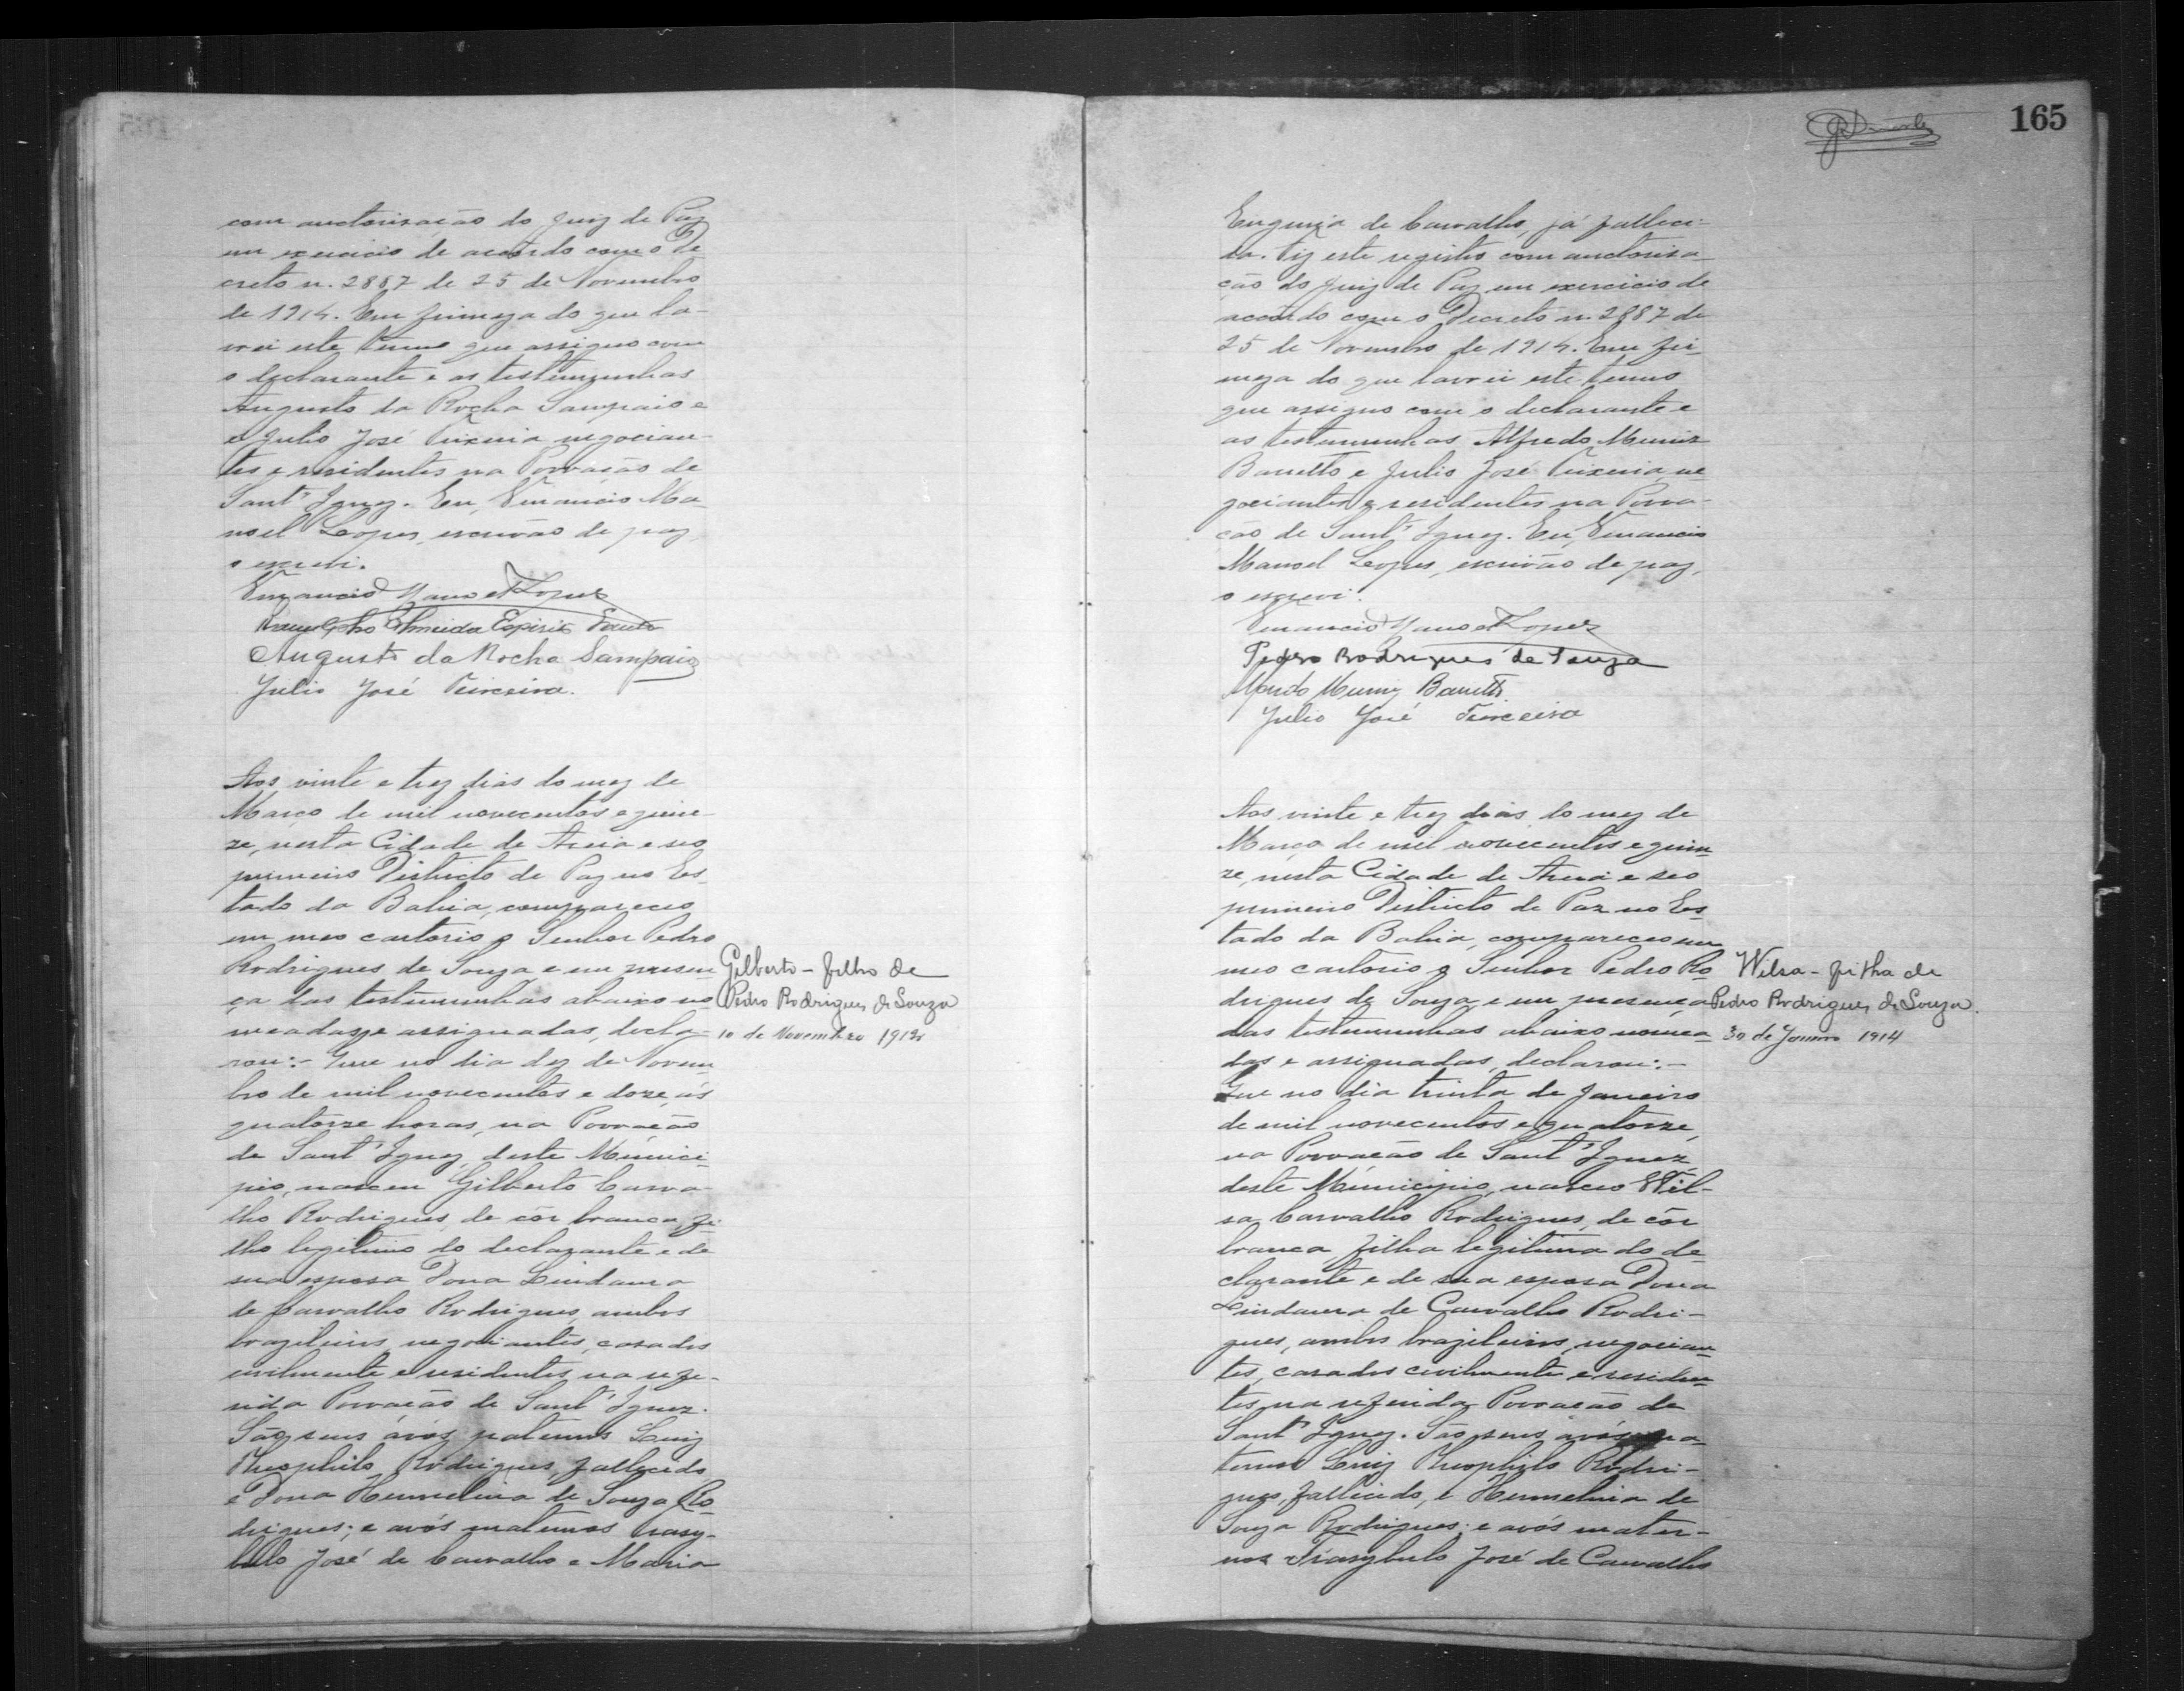 com auctorisação do Juiz de Paz
em exercicio de accordo com o De
creto n. 2887 de 25 de Novembro
de 1914. Em firmeza do que la-
vrei este termo que assigno com
o declarante e as testemunhas
Augusto da Rocha Sampaio e
e Julio José Teixeira, negocian-
tes e residentes na Povoação de
Sant' Ignez. Eu, Venancio Ma
noel Lopes, escrivão de paz
o escrevi.
Venancio Manoel Lopes
Almeida Espirito Santo
Augusto da Rocha Sampaio
Julio José Teixeira.
Aos vinte e trez dias do mez de
Março de mil novecentos e quin-
ze, nesta Cidade de Areia e seo
primeiro Districto de Paz no Es
tado da Bahia, compareceo
em meo cartorio o Senhor Pedro
Rodrigues de Souza e em presen
ça das testemunhas abaixo no
meadas e assignadas, decla-
rou:- Que no dia dez de Novem
bro de mil novecentos e doze, ás
quatorze horas, na Povoação
de Sant' Ignez, deste Munici-
pio, nasceu Gilberto Carva
lho Rodrigues, de côr branca, fi-
lho legitimo do declarante e de
sua esposa Dona Lindaura
de Carvalho Rodrigues, ambos
brazileiros, negociantes, casados
civilmente e residentes na refe-
rida Povoação de Sant' Ignez.
São seus avós paternos Luiz
Theophilo Rodrigues, fallecido,
e Dona Hermelina de Souza Ro
drigues; e avós maternos Trasy-
bulo José de Carvalho e Maria
Gilberto - filho de
Pedro Rodrigues de Souza
10 de Novembro 1912
165
Eugenia de Carvalho, já falleci-
da. Fiz este registro com auctorisa
ção do Juiz de Paz em exercicio de
accordo com o Decreto n. 2887 de
25 de Novembro de 1914. Em fir
meza do que lavrei este termo
que assigno com o declarante e
as testemunhas Alfredo Muniz
Barretto e Julio José Teixeira, ne
gociantes e residentes na Povoa-
ção de Sant' Ignez. Eu, Venancio
Manoel Lopes, escrivão de paz,
o escrevi.
Venancio Manoel Lopes
Pedro Rodrigues de Souza
Alfredo Muniz Barretto
Julio José Teixeira
Aos vinte e trez dias do mez de
Março de mil novecentos e quin
ze, nesta Cidade de Areia e seo
primeiro Districto de Paz no Es
tado da Bahia, compareceo em
meo cartorio o Senhor Pedro Ro
drigues de Souza e em presença
das testemunhas abaixo nomea
das e assignadas, declarou:-
Que no dia trinta de Janeiro
de mil novecentos e quatorze,
na Povoação de Sant' Ignez,
deste Municipio, nasceo Wil-
sa Carvalho Rodrigues, de côr
branca, filha legitima do de
clarante e de sua esposa Dona
Lindaura de Carvalho Rodri-
gues, ambos brazileiros, negocian
tes, casados civilmente e residen
tes na referida Povoação de
Sant' Ignez. São seus avós pa
ternos Luiz Theophilo Rodri-
gues, fallecido, e Hermelina de
Souza Rodrigues; e avós mater-
nos Trasybulo José de Carvalho
Wilsa - filha de
Pedro Rodrigues de Souza.
30 de Janeiro 1914